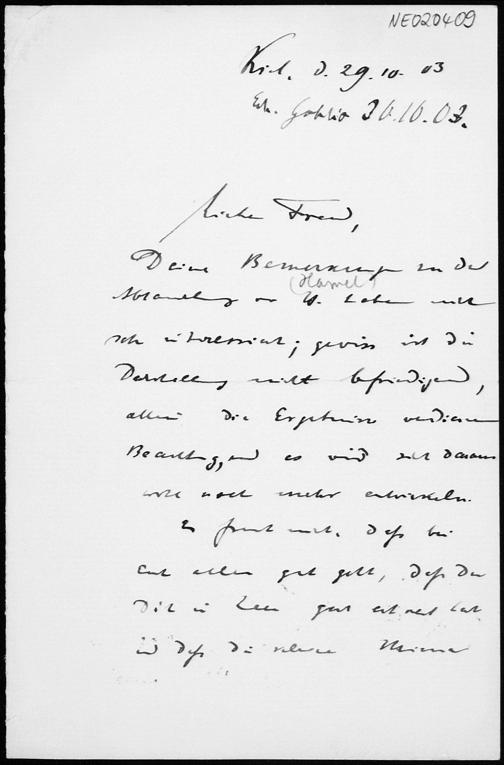 NE020409
Kiel. d. 29.10.03
Erh. 30.10.03.
Lieber Freund,
Deine Bemerkungen zu der
(Hamel)
Abhandlung von H. haben mich
sehr interessirt; gewiss ist die
Darstellung nicht befriedigend,
allein die Ergebnisse verdienen
Beachtung, und es wird sich daraus
wohl noch mehr entwickeln.
Es freut mich, daß bei
Euch allen gut geht, daß Du
Dich in gut erholt hast
und daß die kleine